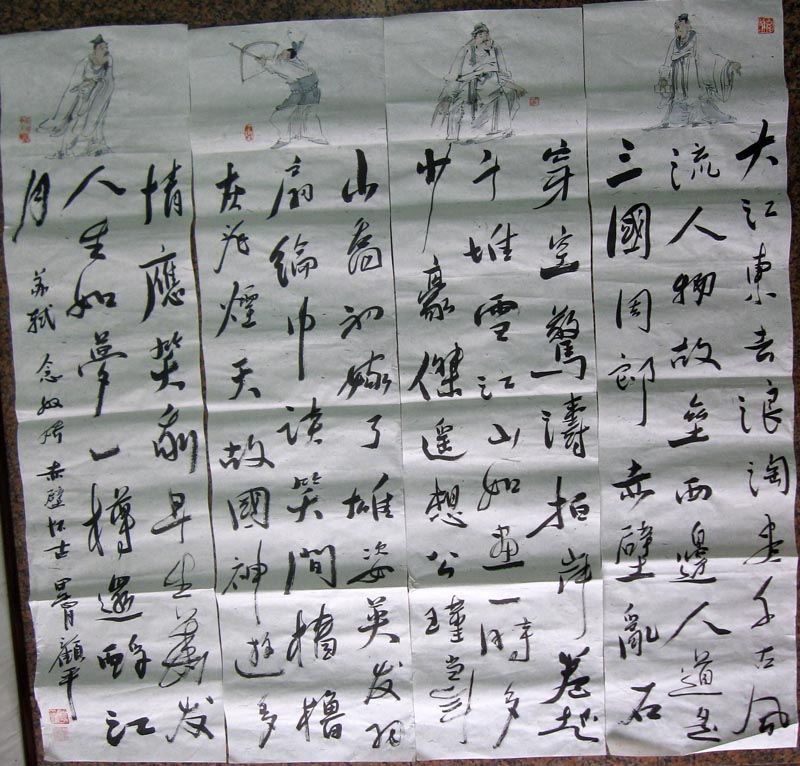 大江東去浪淘尽千古风
流人物故壘西邊人道是
三國周郎赤壁亂石
穿空驚濤拍岸卷起
千堆雪江山如畫一時多
少豪傑遥想公瑾當年
小喬初嫁了雄姿英发羽
扇綸巾談笑間檣櫓
灰飛煙灭故國神遊多
情應笑我早生華发
人生如夢一樽還酹江
月
苏軾 念奴娇 赤壁怀古 顧平